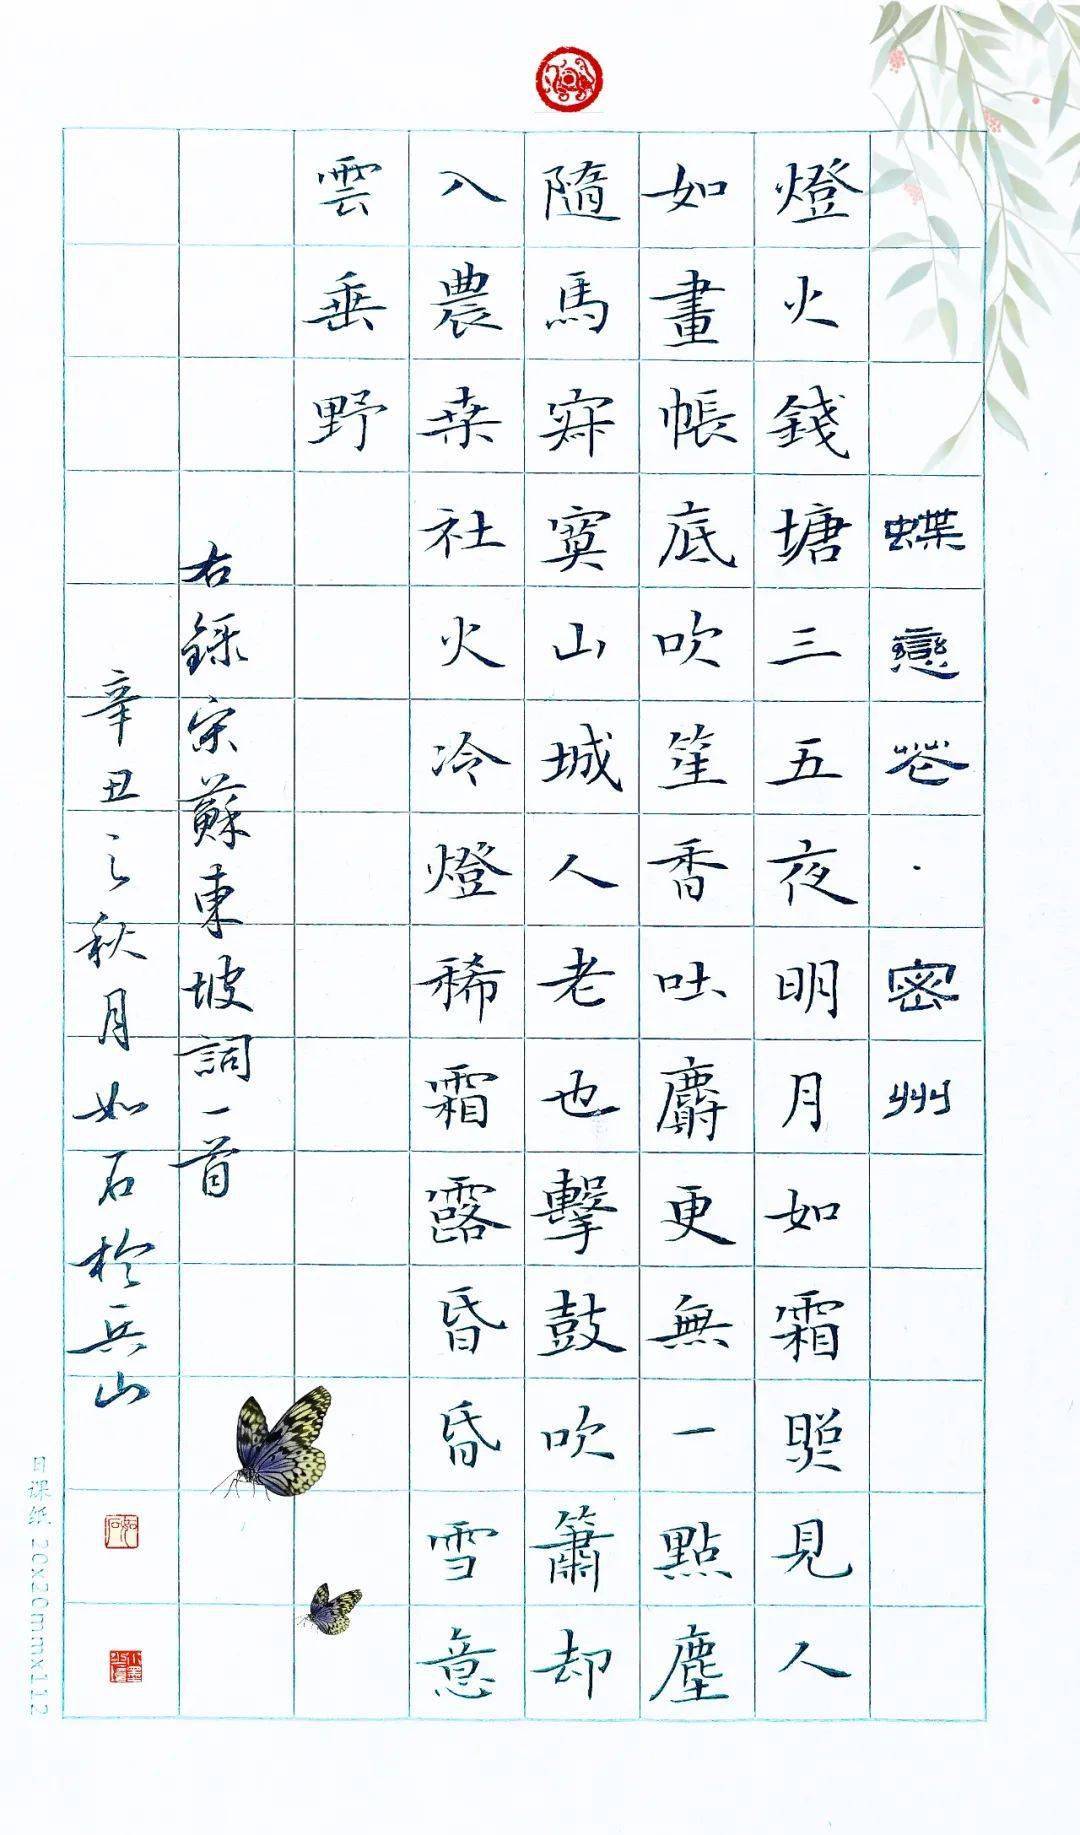 蝶戀花·密州
燈火錢塘三五夜明月如霜照見人
如畫帳底吹笙香吐麝更無一點塵
隨馬寂寞山城人老也擊鼓吹簫却
入農桑社火冷燈稀霜露昏昏雪意
雲垂野
右錄宋蘇東坡詞一首
辛丑之秋月如石於兵山
如石
日课纸 20x20mmx112